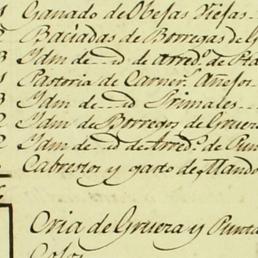 Ganado de Obejas Viejas
Baciadas de Borregas de G
Idm de id de arred.s de
Pastoria de Carner.s Añejos
Idm de id Primales
Idm de Borregos de Gruera
Idm de id de Arred.s de Pun
Cabrestos y gasto de Mando
Cria de Gruera y Punta